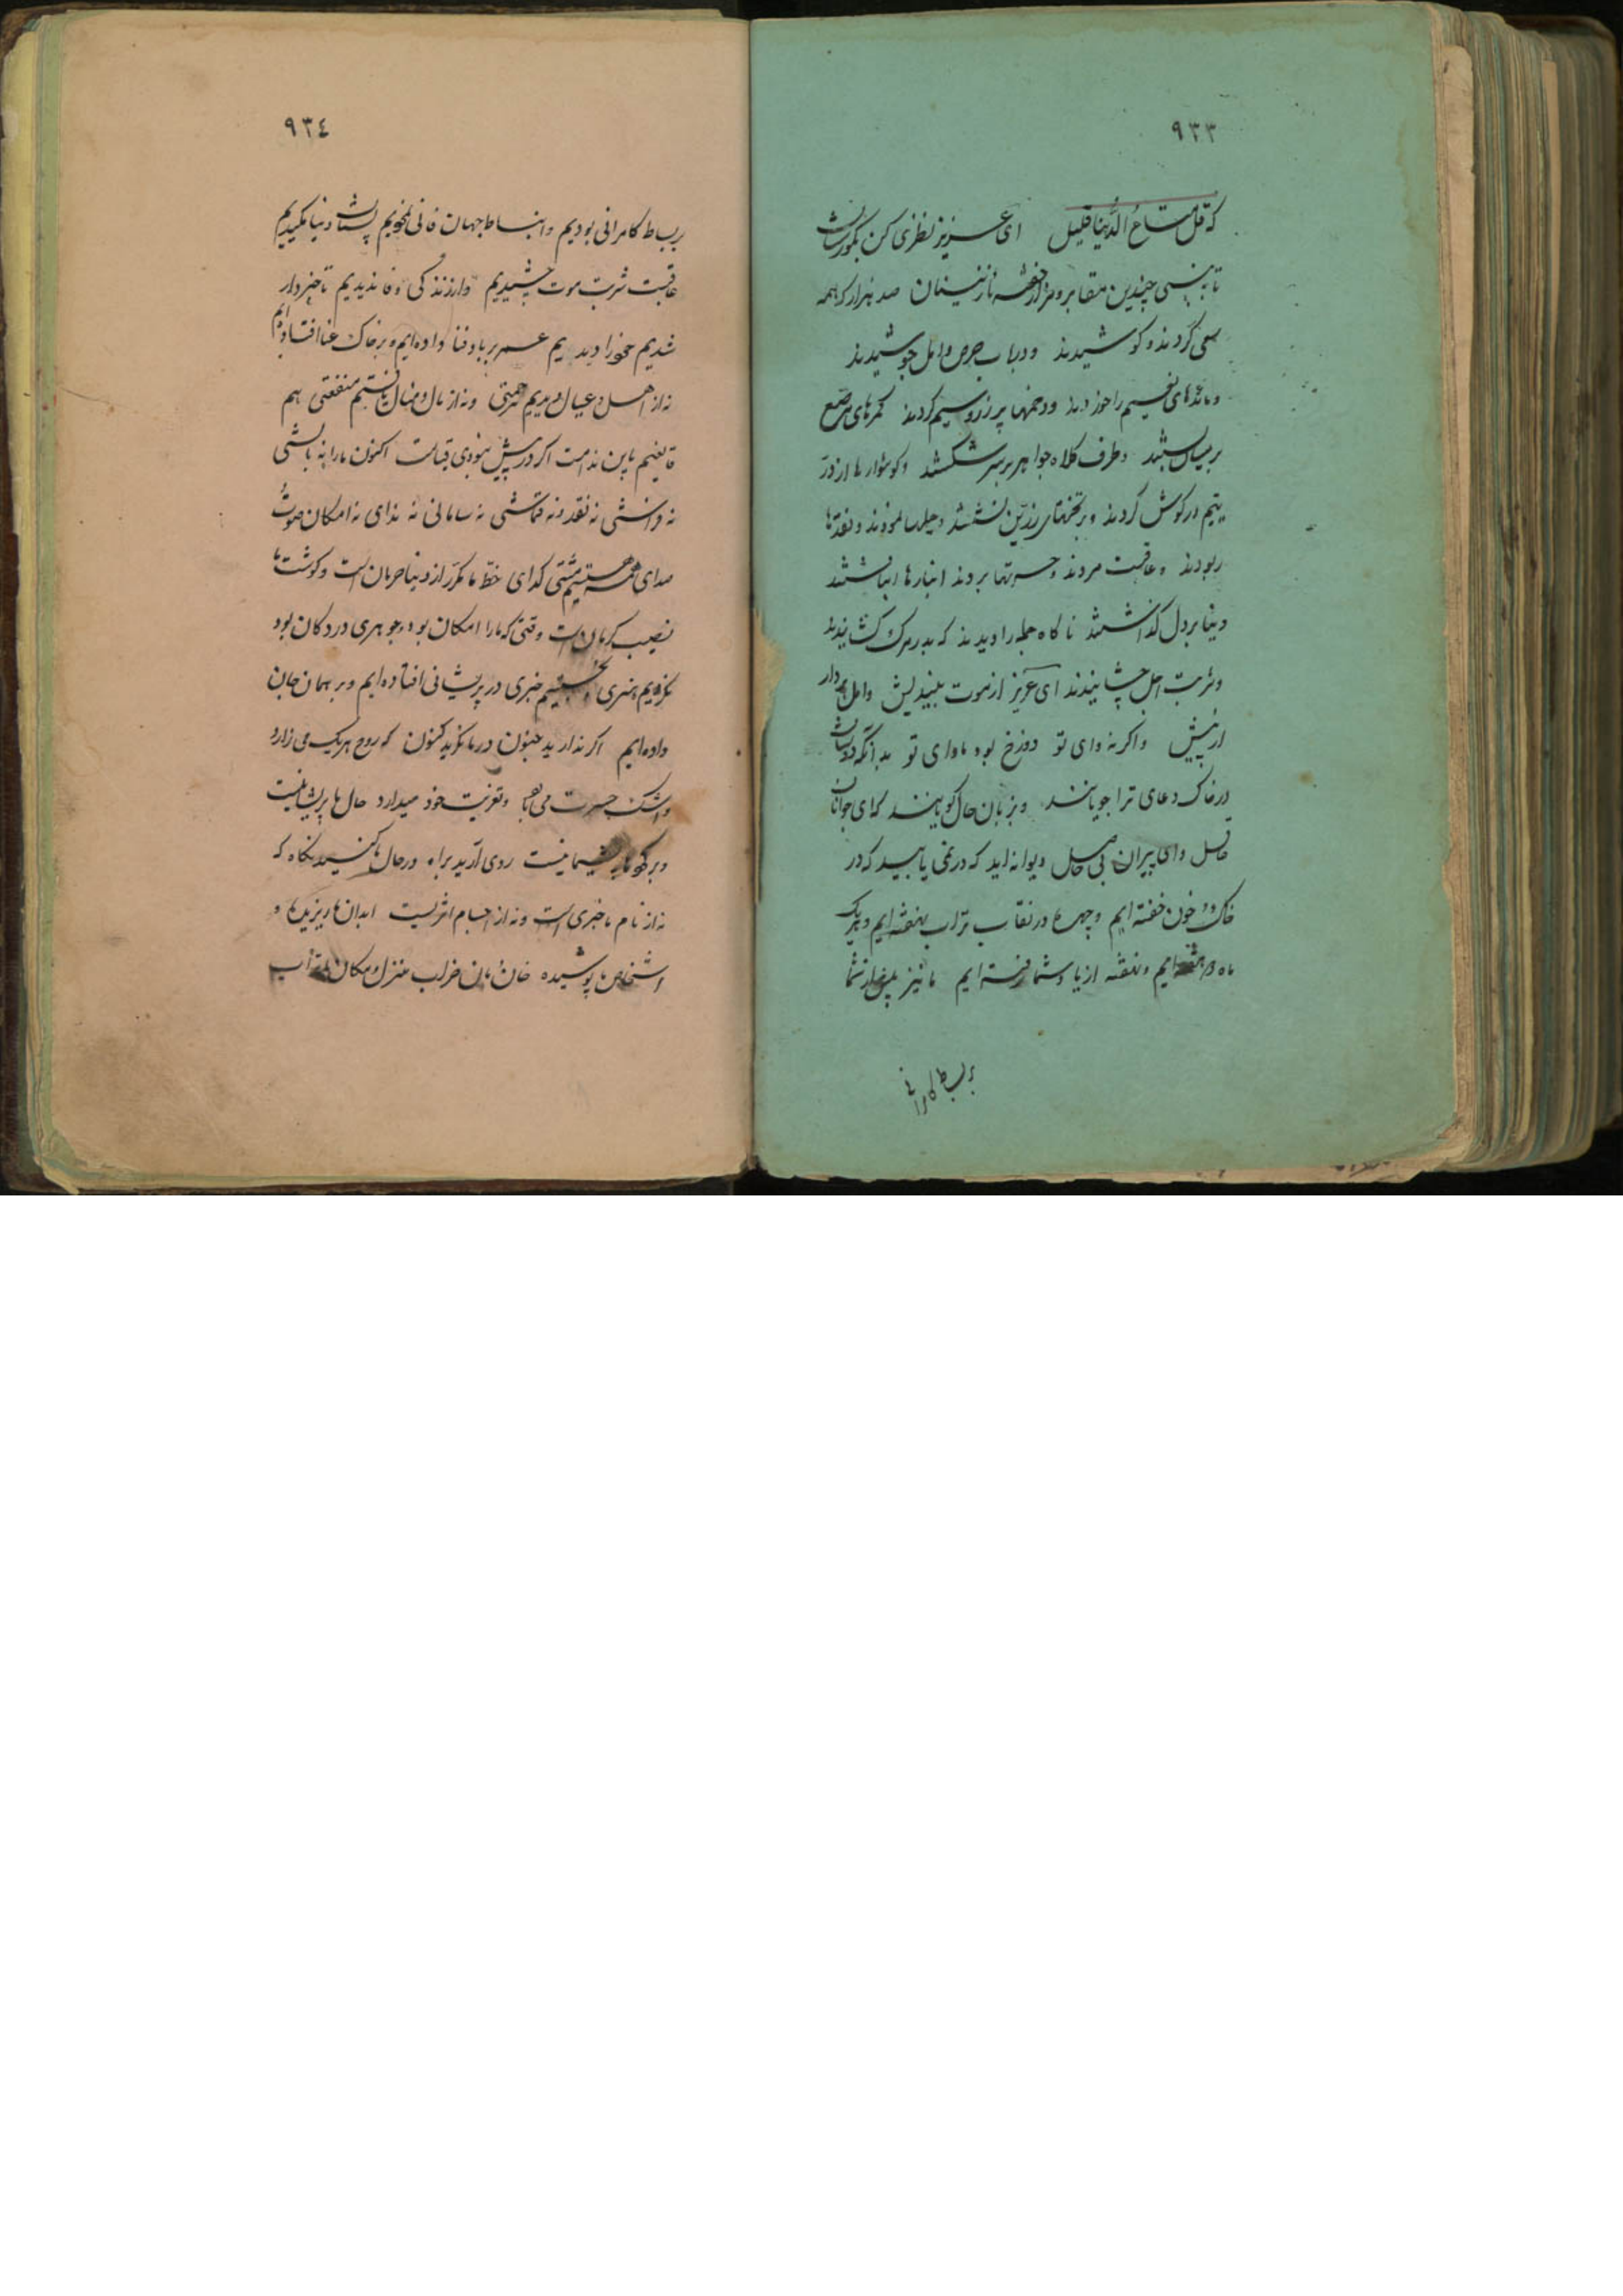 ٩٣٣
که قل متاع الدنیا قلیل ای عزیز نظری کن بگورستان
تا ببینی چندین مقابر و مزار خفته نازنینان صد هزار که همه
سعی کردند و کوشیدند و در تاب حرص و امل جوشیدند
و مائدهای نفیس را خوردند و خمها پر زر و سیم کردند کمرهای مرصع
بر میان بستند و طرف کلاه جواهر بر سر شکستند و گوشوارها از در
یتیم در گوش کردند و بر تختهای زرین نشستند و حیلها نمودند و نقدها
ربودند و عاقبت مردند و حسرتها بردند انبارها انباشتند
دنیا بر دل گذاشتند ناگاه جمله را دیدند که بدر مرگ کشانیدند
و شربت اجل چشانیدند ای عزیز از موت بیندیش و امل بردار
از پیش و اگر نه وای تو دوزخ بود ماوای تو بدانکه دوستان
در خاک دعای ترا جویانند و بزبان حال گویانند که ای جوانان
غافل و ای پیران بی حاصل دیوانه اید که در نمی یابید که در
خاک و خون خفته ایم و چهره در نقاب تراب نهفته ایم و هر یک
ماه دو هفته ایم و بهفته از یاد شما رفته ایم ما نیز پیش از شما
بر بساط کامرانی
٩٣٤
بر بساط کامرانی بودیم و انبساط جهان فانی نمودیم پستان دنیا مکیدیم
عاقبت شربت موت چشیدیم و از زندگی وفا ندیدیم تا خبردار
شدیم خود را دیدیم عمر بر باد فنا داده ایم و بر خاک عنا افتاده ایم
نه از اهل و عیال دیدیم مرحمتی و نه از مال و منال یافتیم منفعتی هم
قانعیم باین ندامت اگر در پیش نبودی قیامت اکنون ما را نه بالشی
نه فراشی نه نقد و نه قماشی نه سامانی نه ندای نه امکان صوت
صدای همه هستیم مشتی گدای حظ ما مکرر از دنیا حرمان است و گوشت ما
نصیب کرمان است وقتی که ما را امکان بود و جوهری در دکان بود
نکردیم هنری و نجستیم خبری در پریشانی افتاده ایم و بر بهمان جان
داده ایم اگر ندارید جنون در ما نگرید کنون که روح هر یک می زارد
و اشک حسرت می بارد و تعزیت خود میدارد حال ما پریشانیست
و بر گور ما پشیمانیست روی آرید براه و در حال ما کنید نگاه که
نه از نام ما خبری است و نه از اجسام اثریست ابدان ما ریزیده و
اشخاص ما پوسیده خان و مان خراب منزل و مکان ما تراب